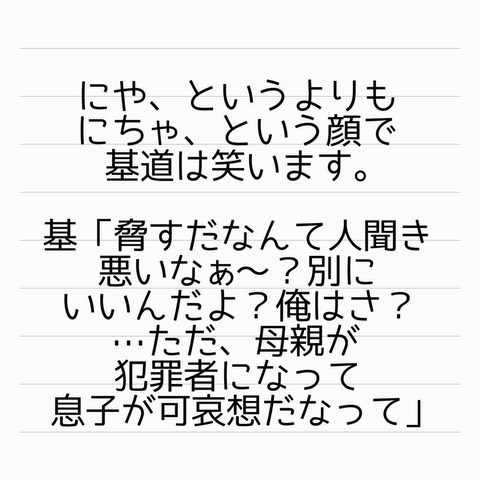 にや、というよりも
にちゃ、という顔で
基道は笑います。
基「脅すだなんて人聞き
悪いなぁ～？別に
いいんだよ？俺はさ？
…ただ、母親が
犯罪者になって
息子が可哀想だなって」